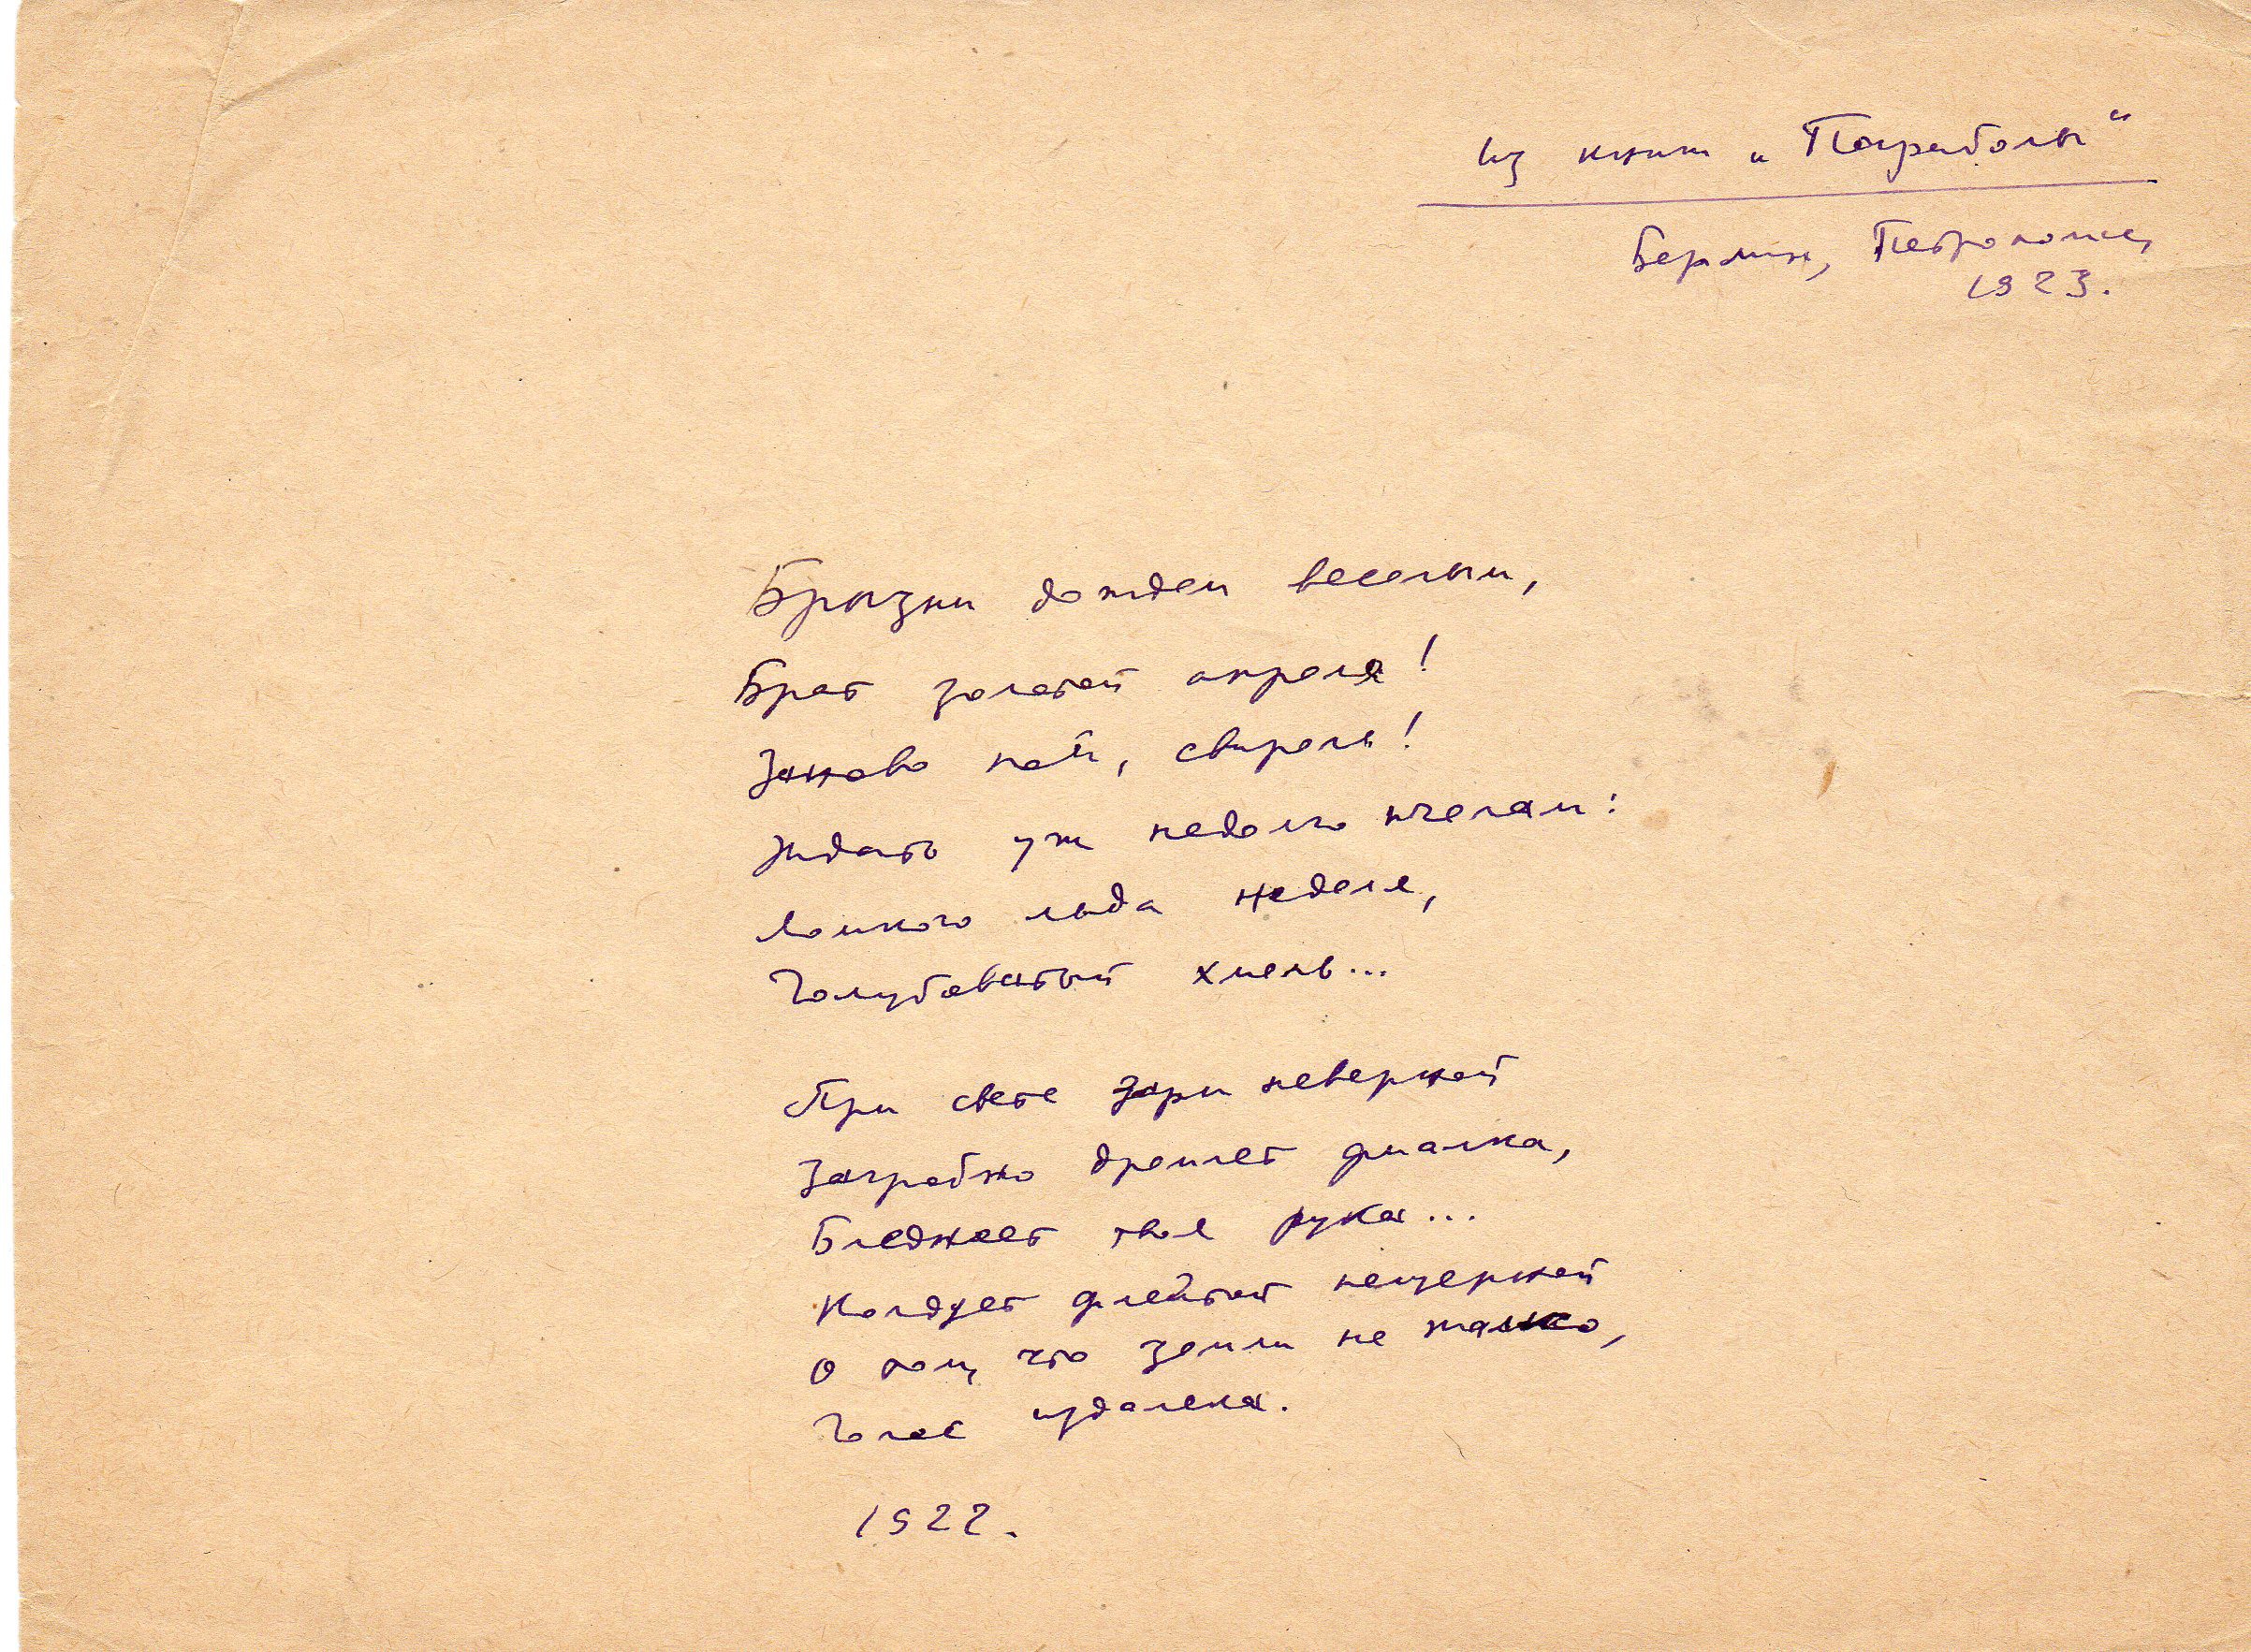 Из книги „Параболы“
Берлин, Петрополис,
1923.
Брызни дождем веселым,
Брат золотой апреля!
Заново пой, свирель!
Ждать уж недолго пчелам:
Ломкого льда неделя,
Голубоватый хмель...
При свете зари неверной
Загробно дремлет фиалка,
Бледнеет твоя рука...
Колдует флейтой пещерной
О том, что земли не жалко,
Голос издалека.
1922.